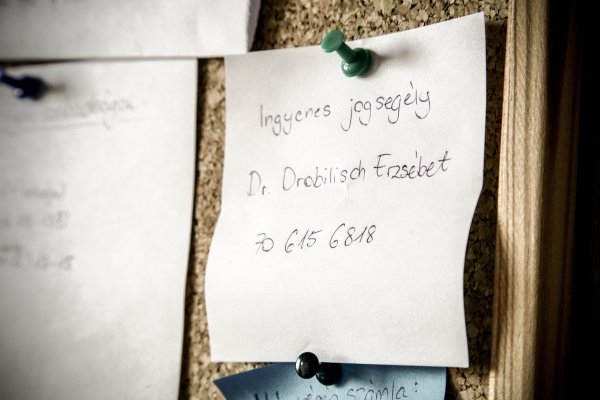 Ingyenes jogsegély
Dr. Drobilisch Erzsébet
70 615 6818
számla: